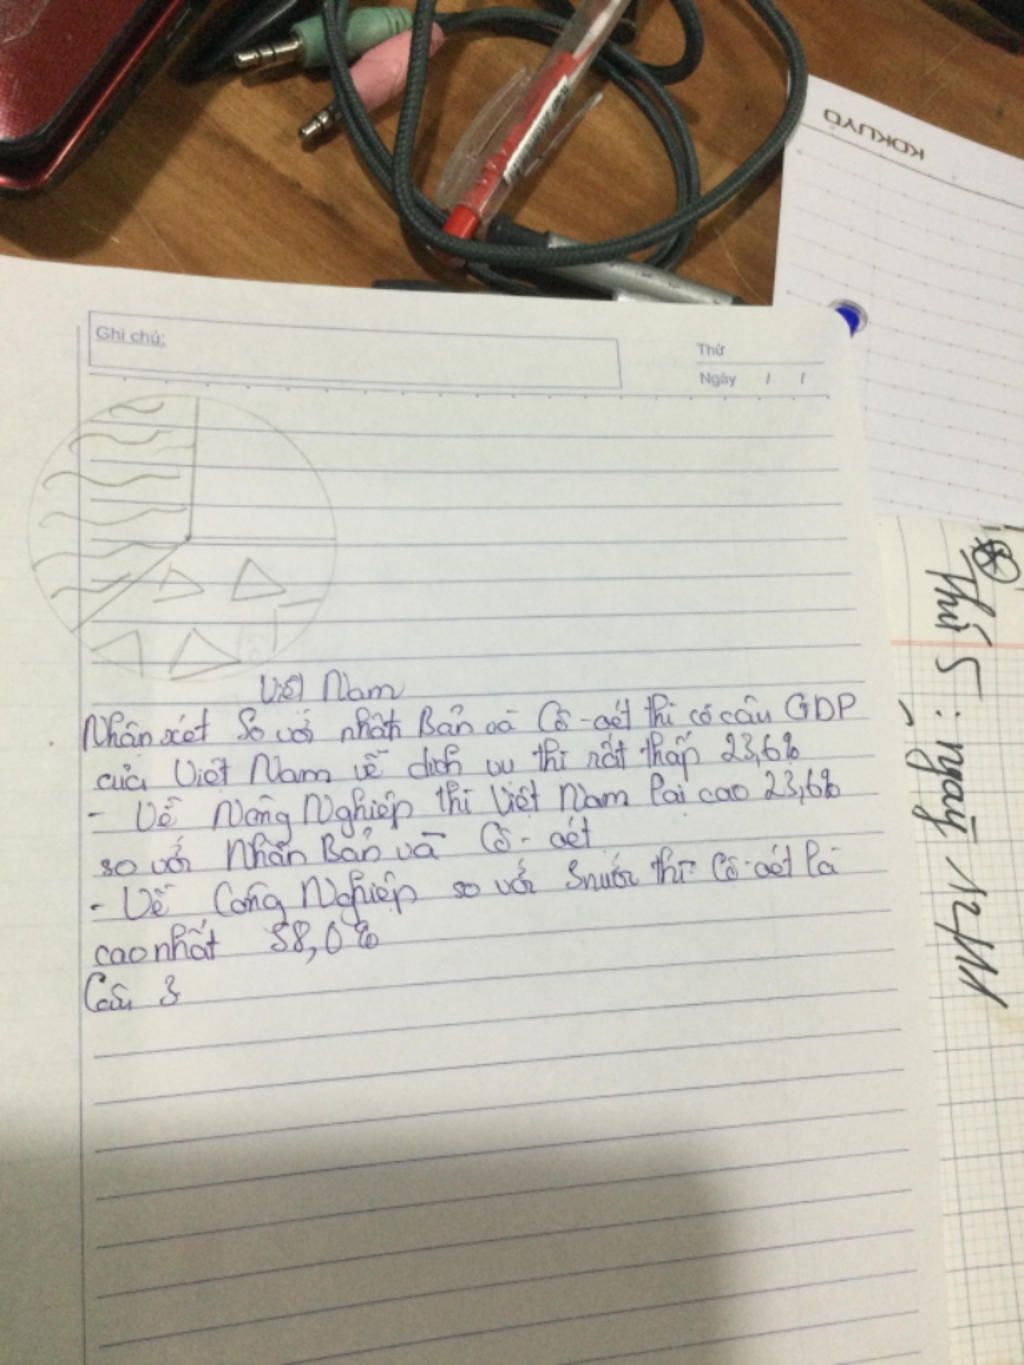 KOKUYO
Ghi chú:
Thứ
Ngày / /
Việt Nam
Nhận xét So với nhật Bản và Cô-oét thì cơ cấu GDP
của Việt Nam về dịch vụ thì rất thấp 23,6%
- Về Nông Nghiệp thì Việt Nam lại cao 23,6%
so với Nhân Bản và Cô-oét
- Về Công Nghiệp so với 3 nước thì Cô-oét là
cao nhất 58,0%
Câu 3
Thứ 5 : ngày 12/11